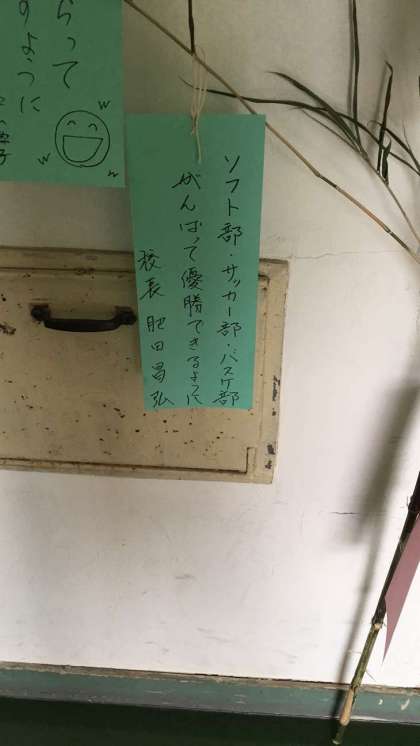 ソフト部・サッカー部・バスケ部
がんばって優勝できるように
校長 肥田昌弘
らって
のように
w
w
w